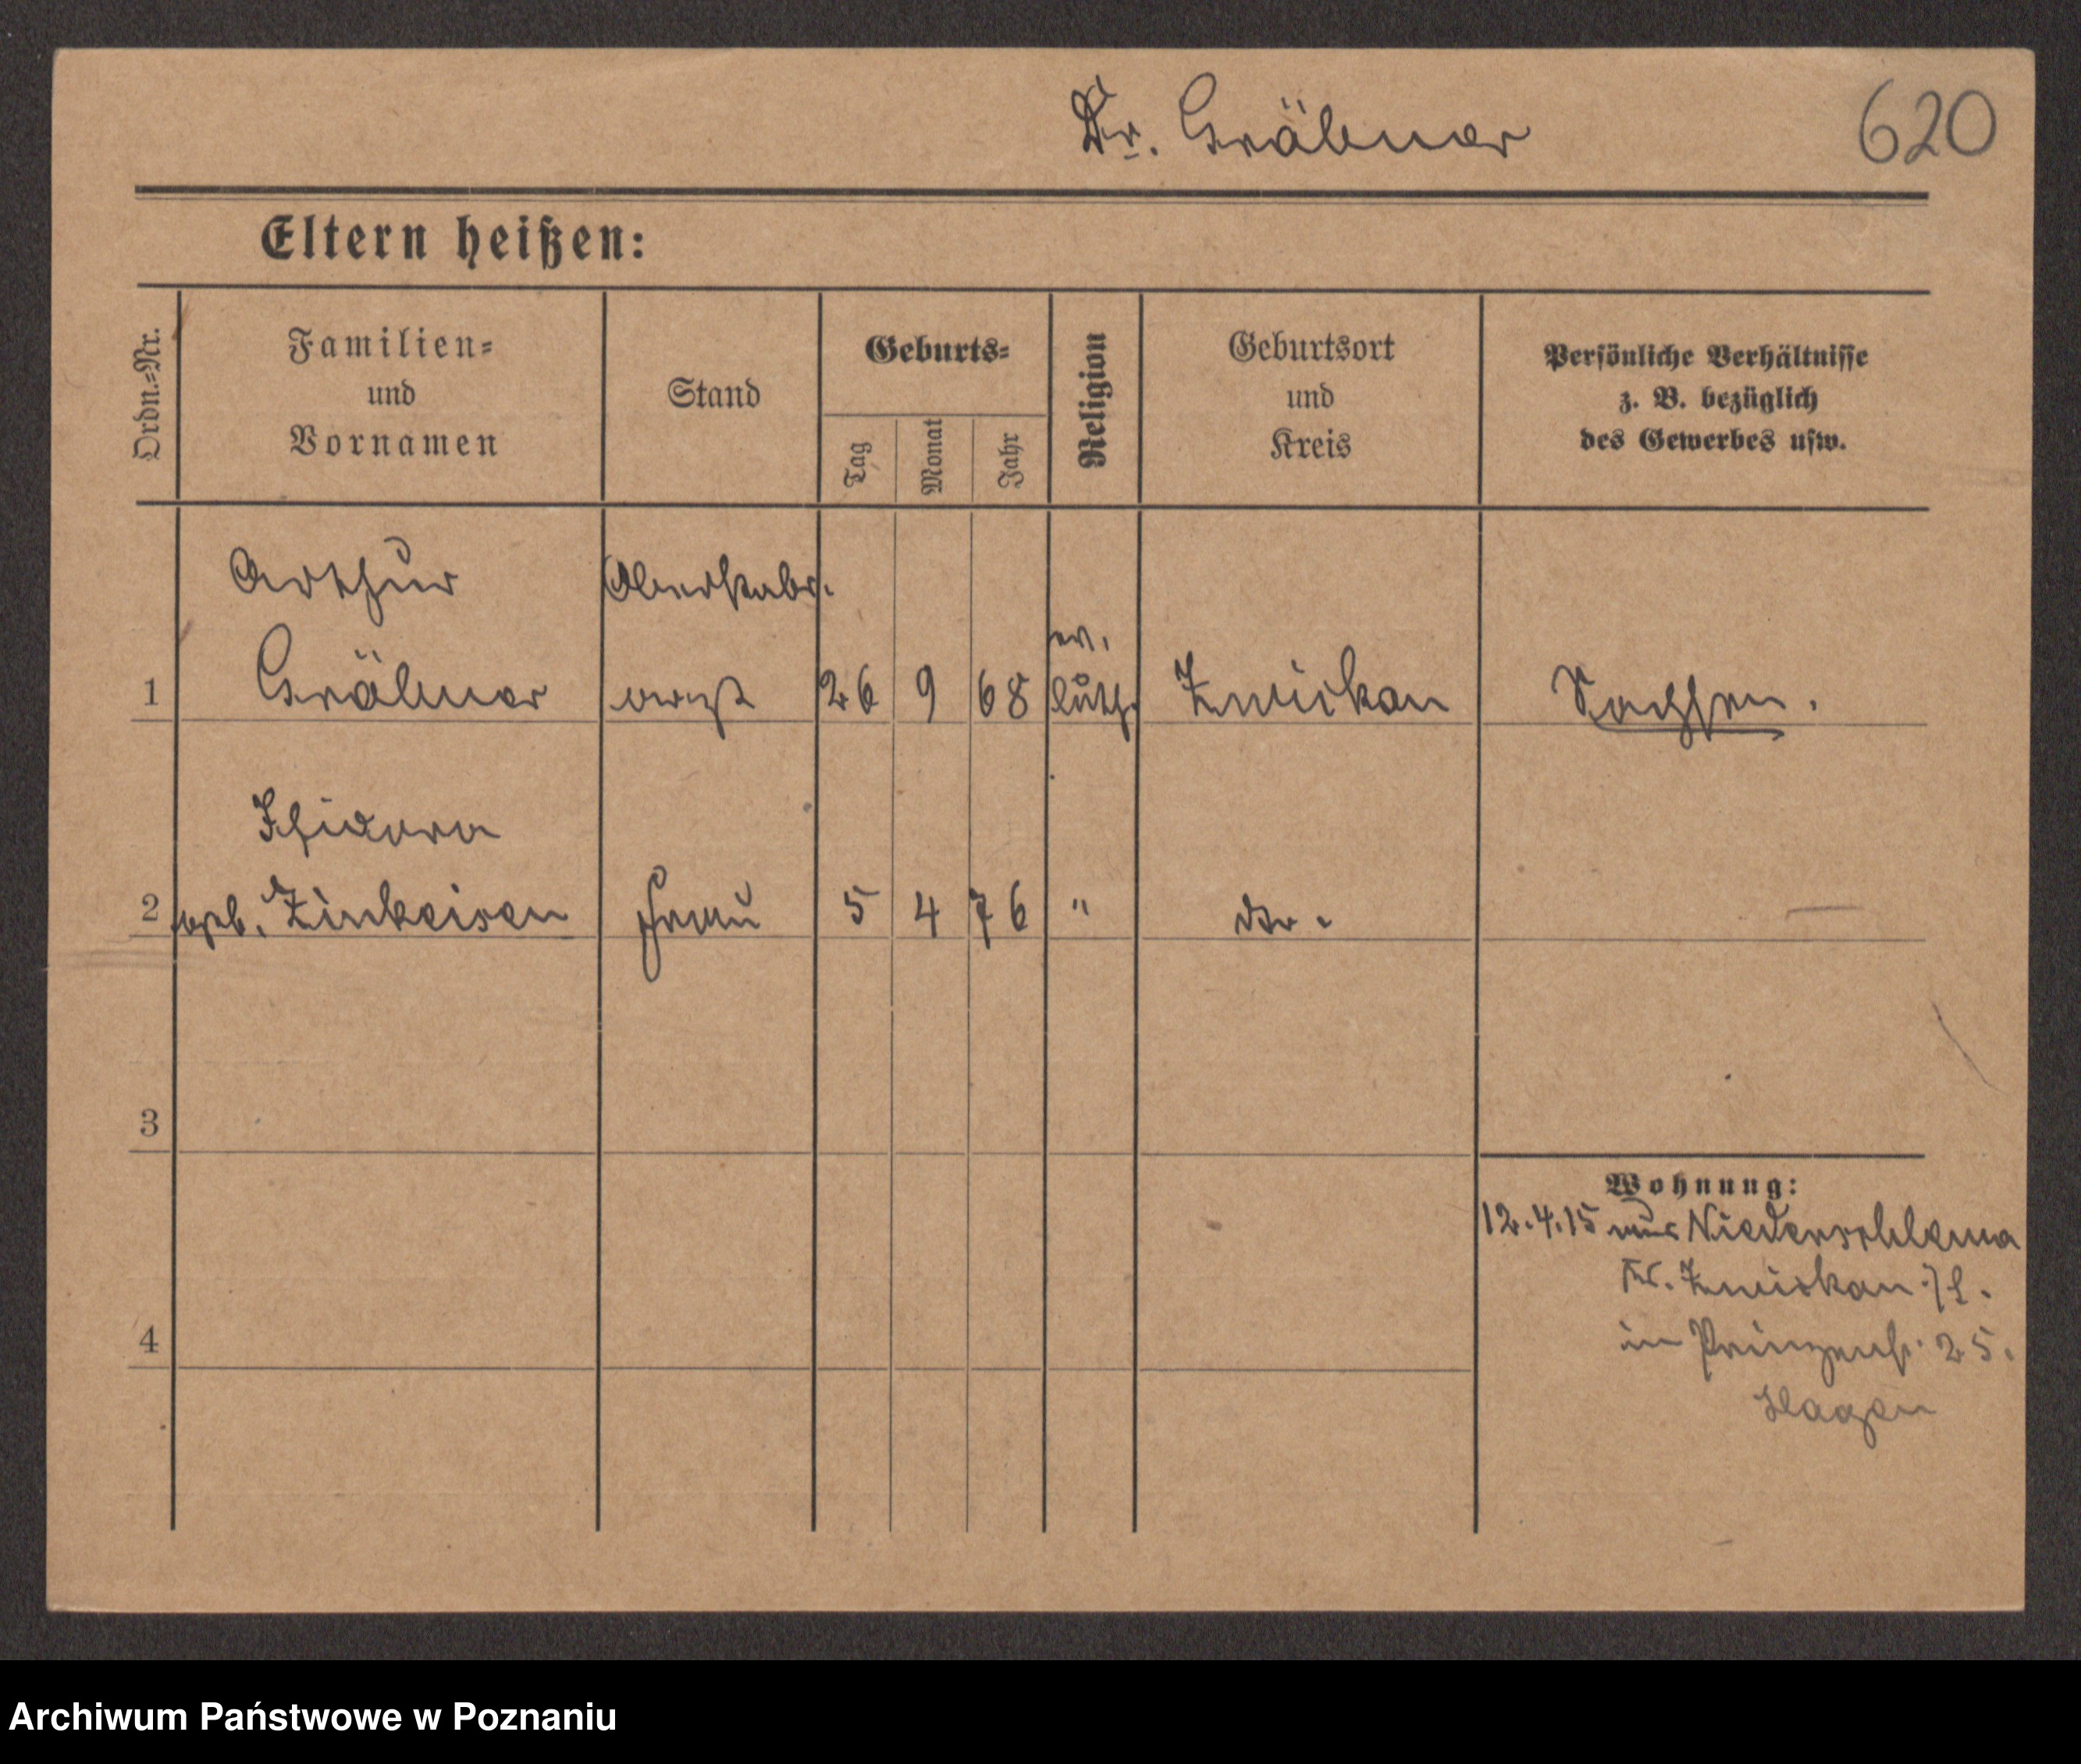 Dr. Gräbner
620
Eltern heißen:
Ordn.=Nr.
Familien=
und
Vornamen
Stand
Geburts=
Tag
Monat
Jahr
Religion
Geburtsort
und
Kreis
Persönliche Verhältnisse
z. B. bezüglich
des Gewerbes usw.
Arthur Oberstabs.
ev.
1 Gräbner arzt 26 9 68 luth. Zwickau Sachsen.
Isidora
2 geb. Zinkeisen Frau 5 4 76 " do.
3
Wohnung:
12.4.15 aus Niederschlema
Kr. Zwickau i/S.
4
in Prinzenstr. 25.
Hagen
Archiwum Państwowe w Poznaniu